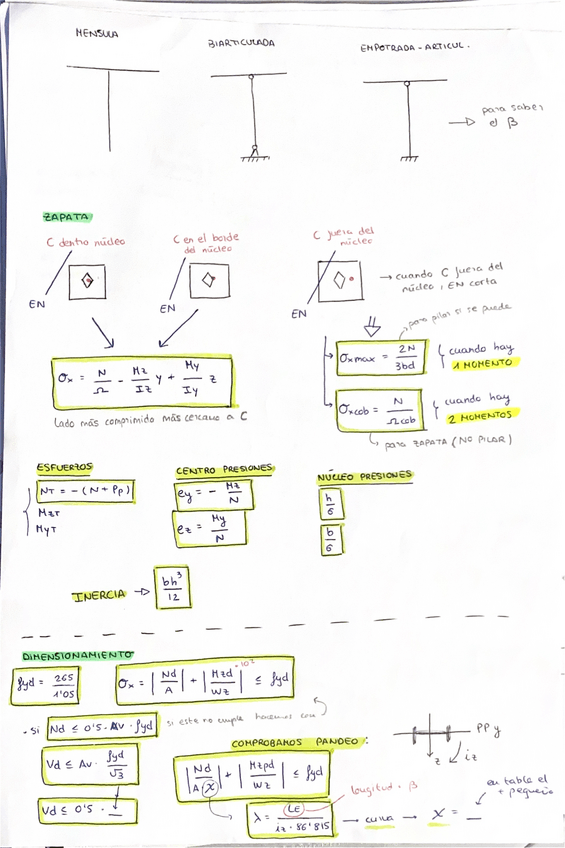 MENSULA
BIARTICULADA
EMPOTRADA - ARTICUL.
para saber
el β
ZAPATA
C dentro núcleo
C en el borde
del núcleo
C fuera del
núcleo
EN
EN
EN
→ cuando C fuera del
núcleo, EN corta
para pilar si se puede
σx = N/Ω - Mz/Iz y + My/Iy z
Lado más comprimido más cercano a C
σxmax = 2N/3bd
cuando hay
1 MOMENTO
σxcob = N/Ωcob
cuando hay
2 MOMENTOS
para ZAPATA (NO PILAR)
ESFUERZOS
NT = - (N + Pp)
MzT
MyT
CENTRO PRESIONES
ey = - Mz/N
ez = My/N
NÚCLEO PRESIONES
h/6
b/6
INERCIA → bh³/12
DIMENSIONAMIENTO
fyd = 265/1'05
σx = |Nd/A| + |Mzd/Wz| ≤ fyd
· si Nd ≤ 0'5 · Av · fyd
si esta no cumple hacemos con
Vd ≤ Av · fyd/√3
Vd ≤ 0'5 · __
COMPROBAMOS PANDEO:
|Nd/A·χ| + |Mzpd/Wz| ≤ fyd
longitud · β
λ = LE/iz · 86'815 → curva → χ = __
PP y
z
iz
en tabla el
+ pequeño